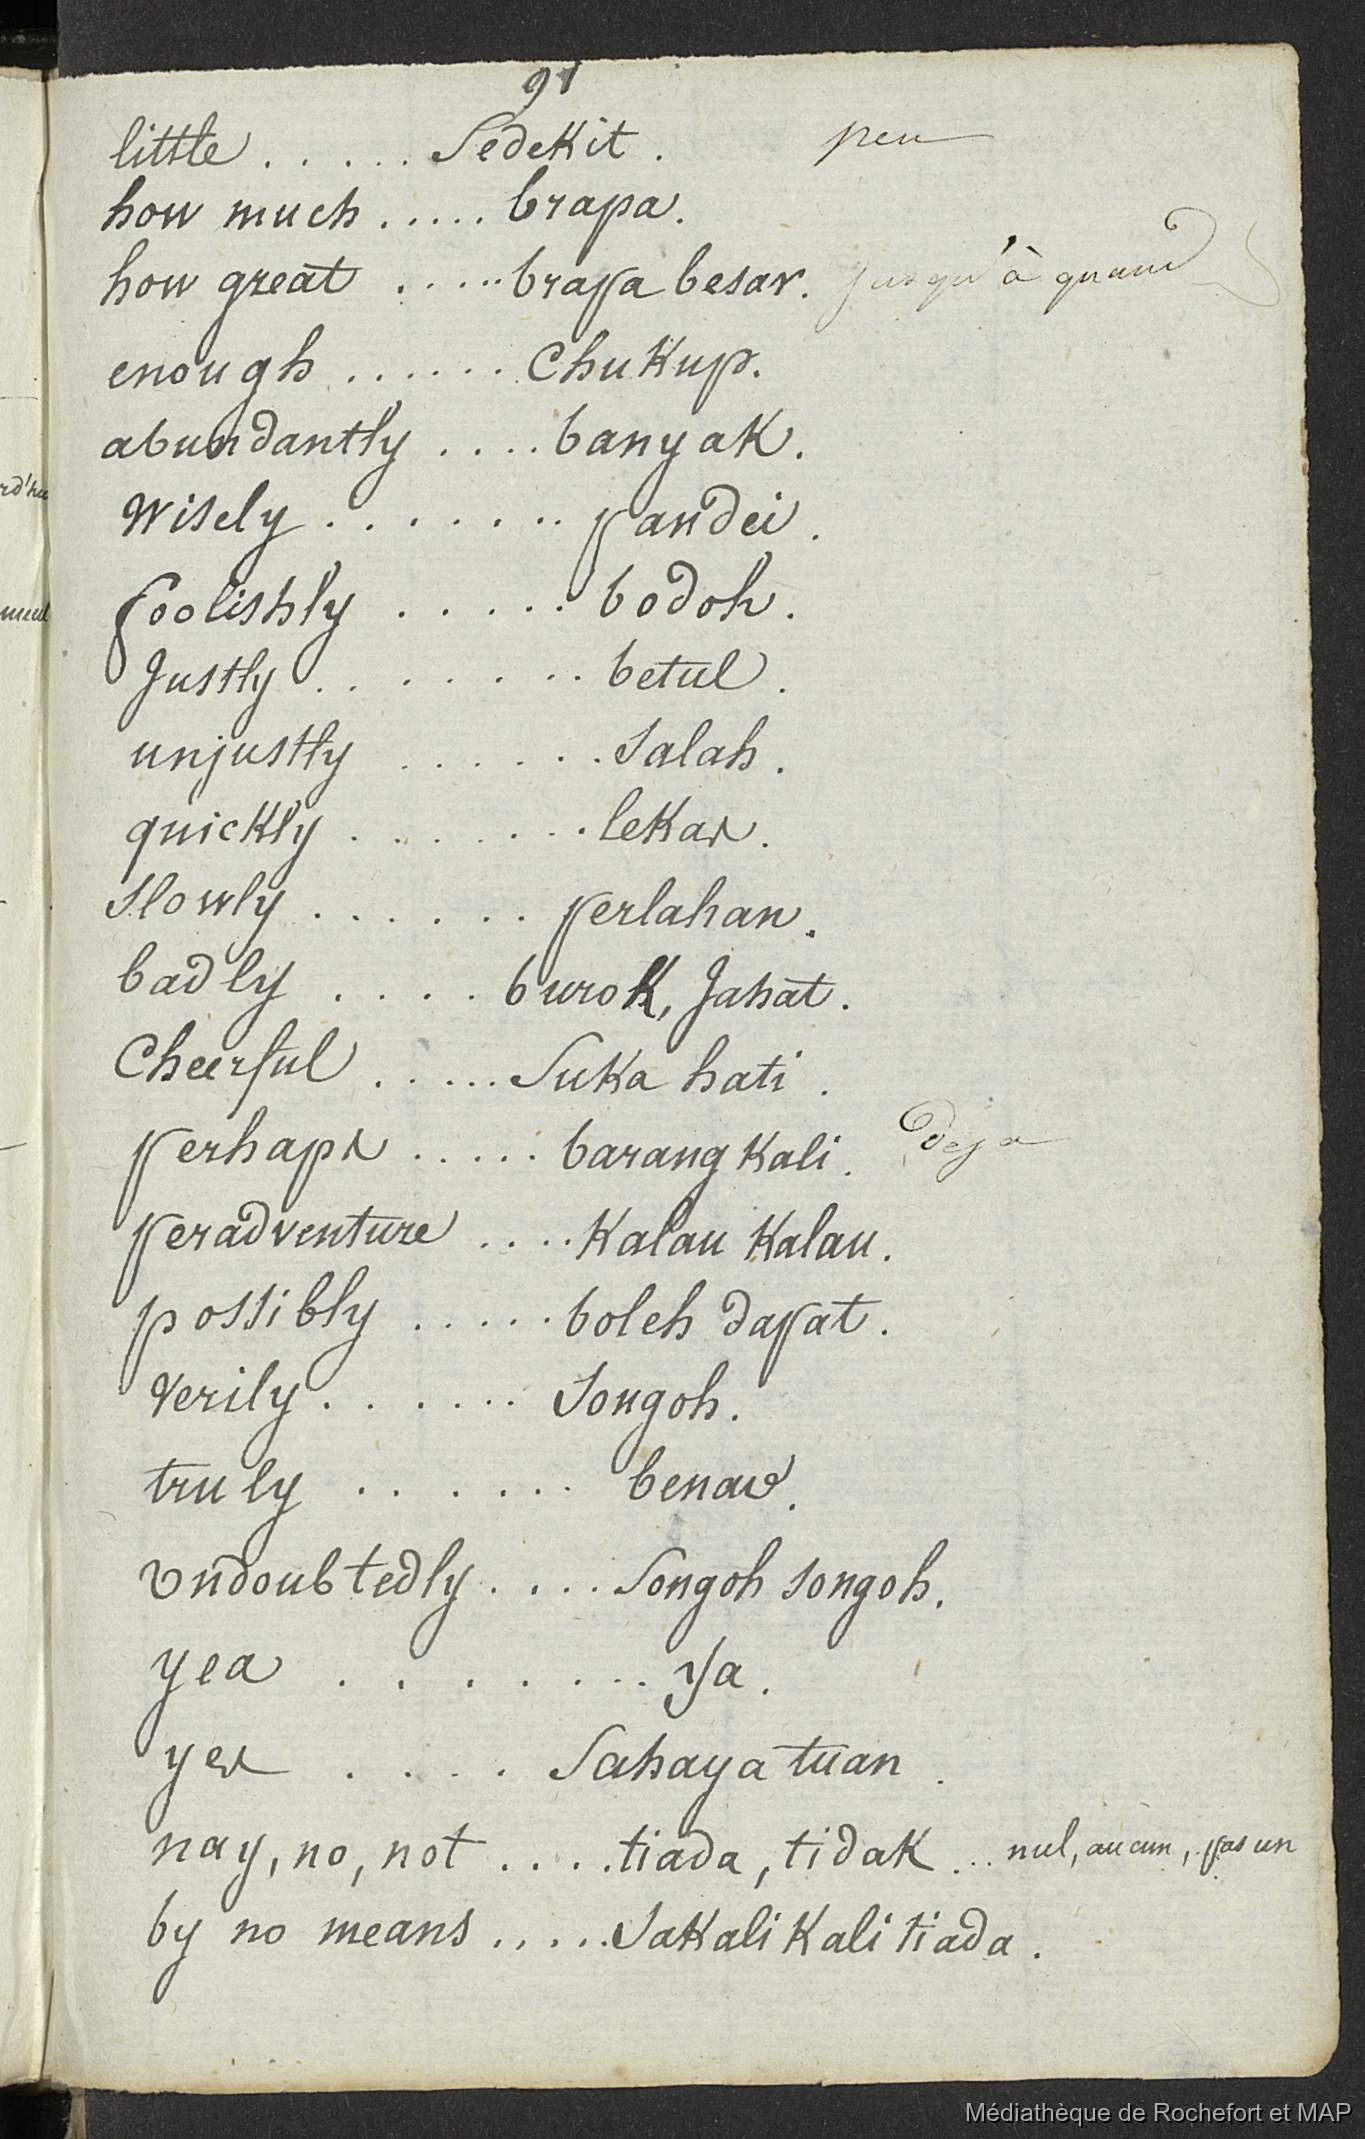 91
little ..... Sedekit. peu
how much ..... brapa.
how great ..... brapa besar. jusqu'à quand
enough ...... Chukup.
abundantly .... banyak.
Wisely ....... pandei.
foolishly ..... bodoh.
Justly ....... betul.
unjustly ...... Salah.
quickly ....... lekas.
Slowly ...... perlahan.
badly .... burok, Jahat.
Cheerful ..... Suka hati.
perhaps ..... barang kali. deja
peradventure .... Kalau Kalau.
possibly ..... boleh dapat.
Verily ...... Songoh.
truly ...... benar.
Undoubtedly .... Songoh songoh.
yea ....... ya.
yes .... Sahaya tuan.
nay, no, not .... tiada, tidak ... nul, aucun, pas un
by no means ..... Sakali Kali tiada.
rd'hui
Médiathèque de Rochefort et MAP